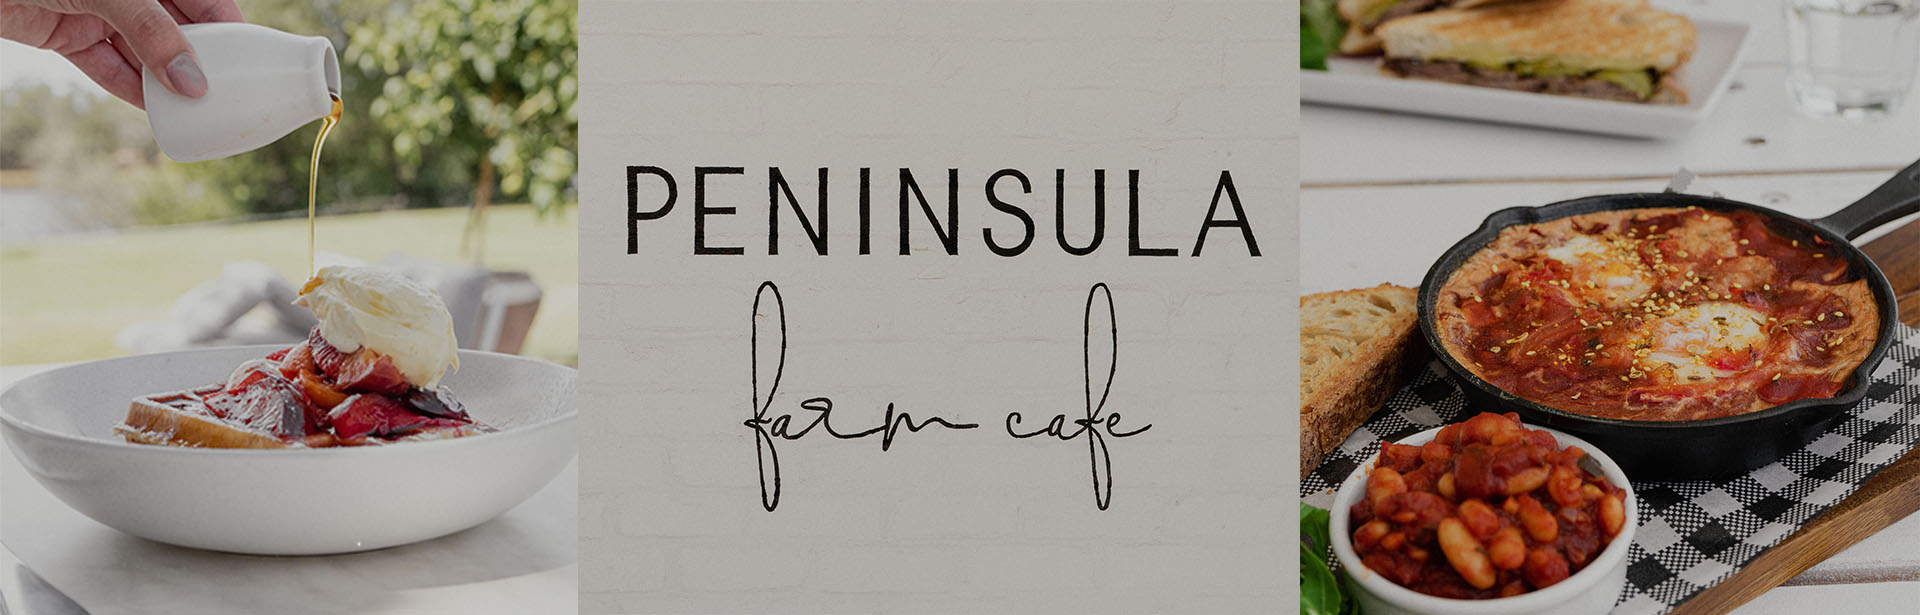 PENINSULA
farm cafe